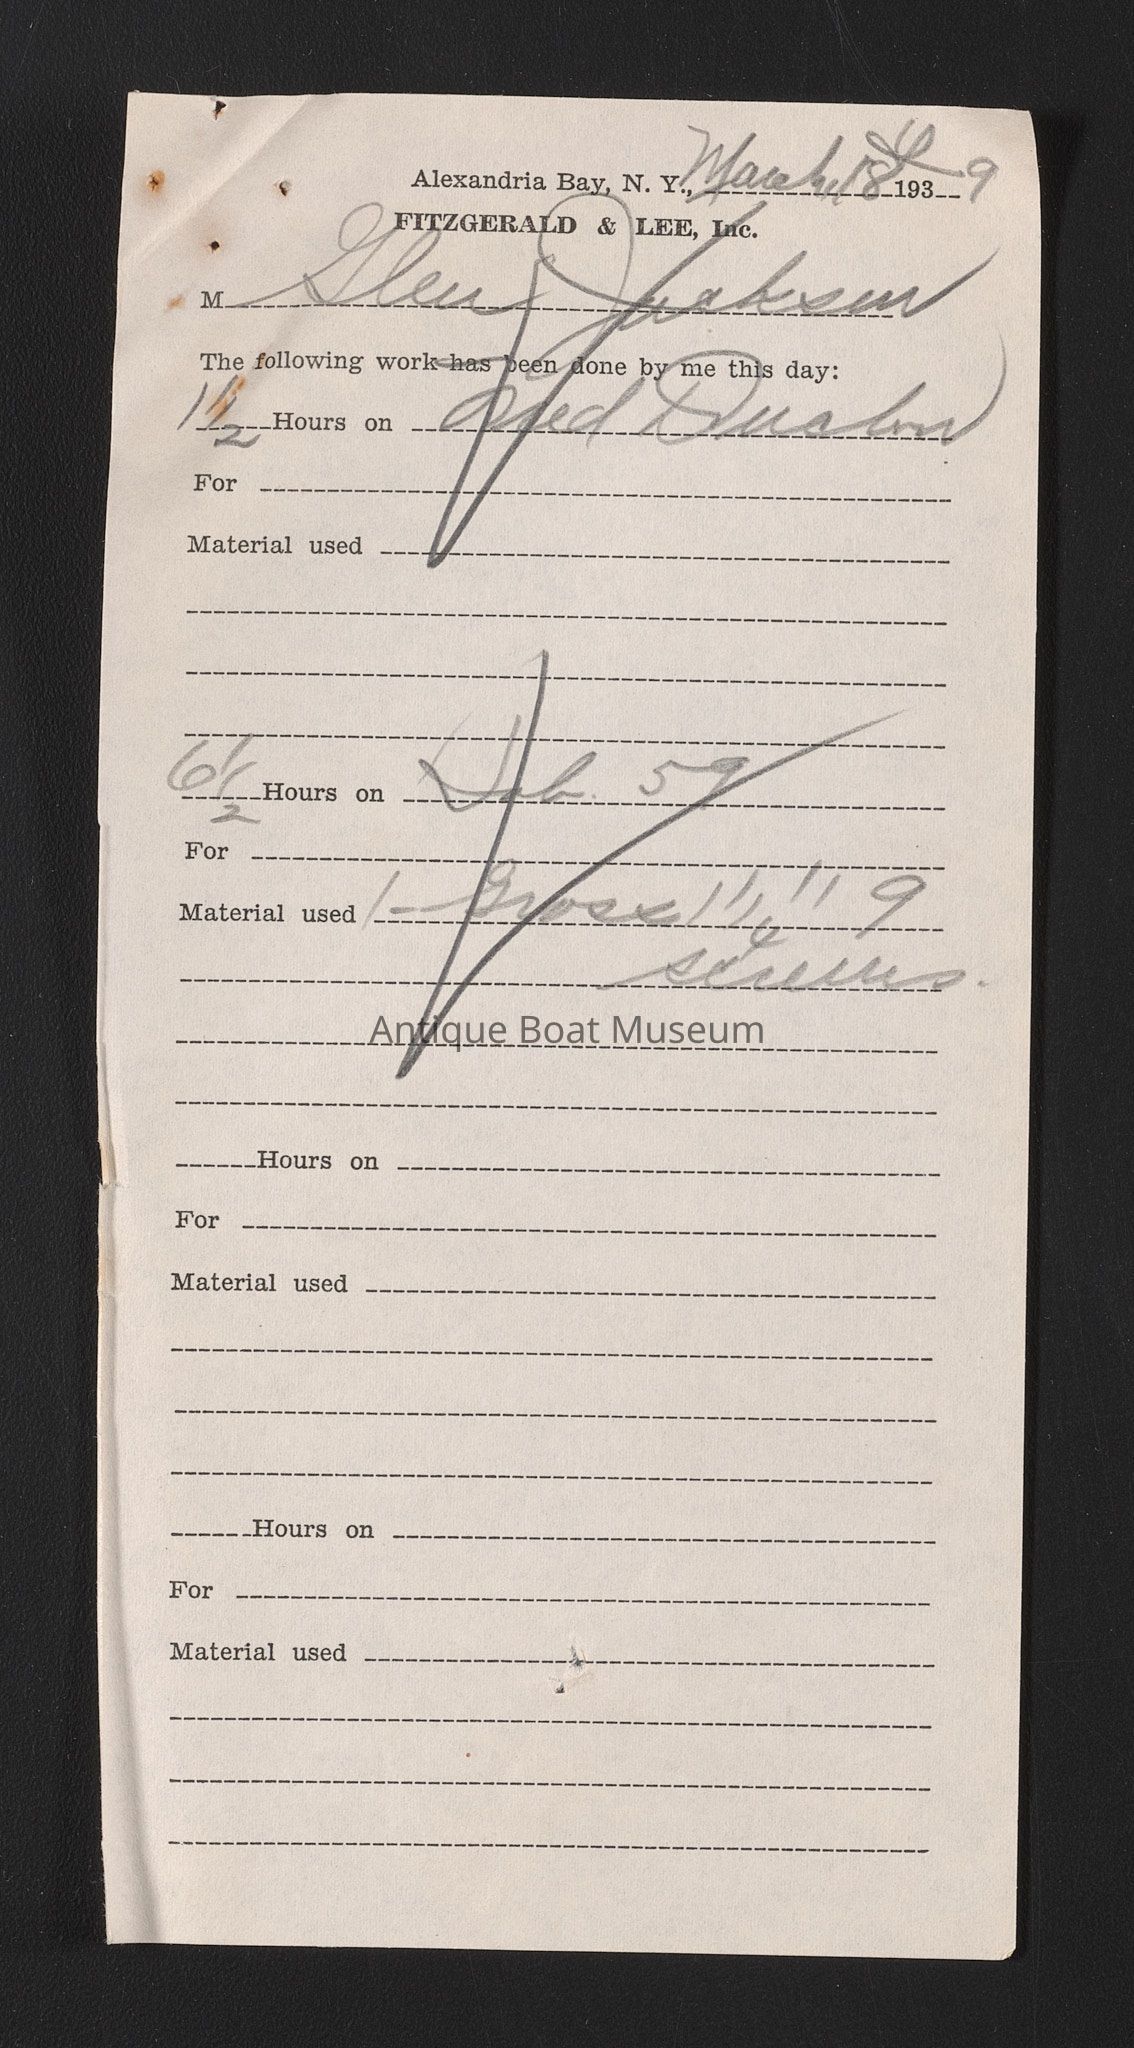 Alexandria Bay, N. Y., March, 18th 1939
FITZGERALD & LEE, Inc.
M Glen Jackson
The following work has been done by me this day:
1 1/2 Hours on
For
Material used
6 1/2 Hours on Job. 59
For
Material used 1- Gross 1 1/4" 9
screws.
Antique Boat Museum
Hours on
For
Material used
Hours on
For
Material used